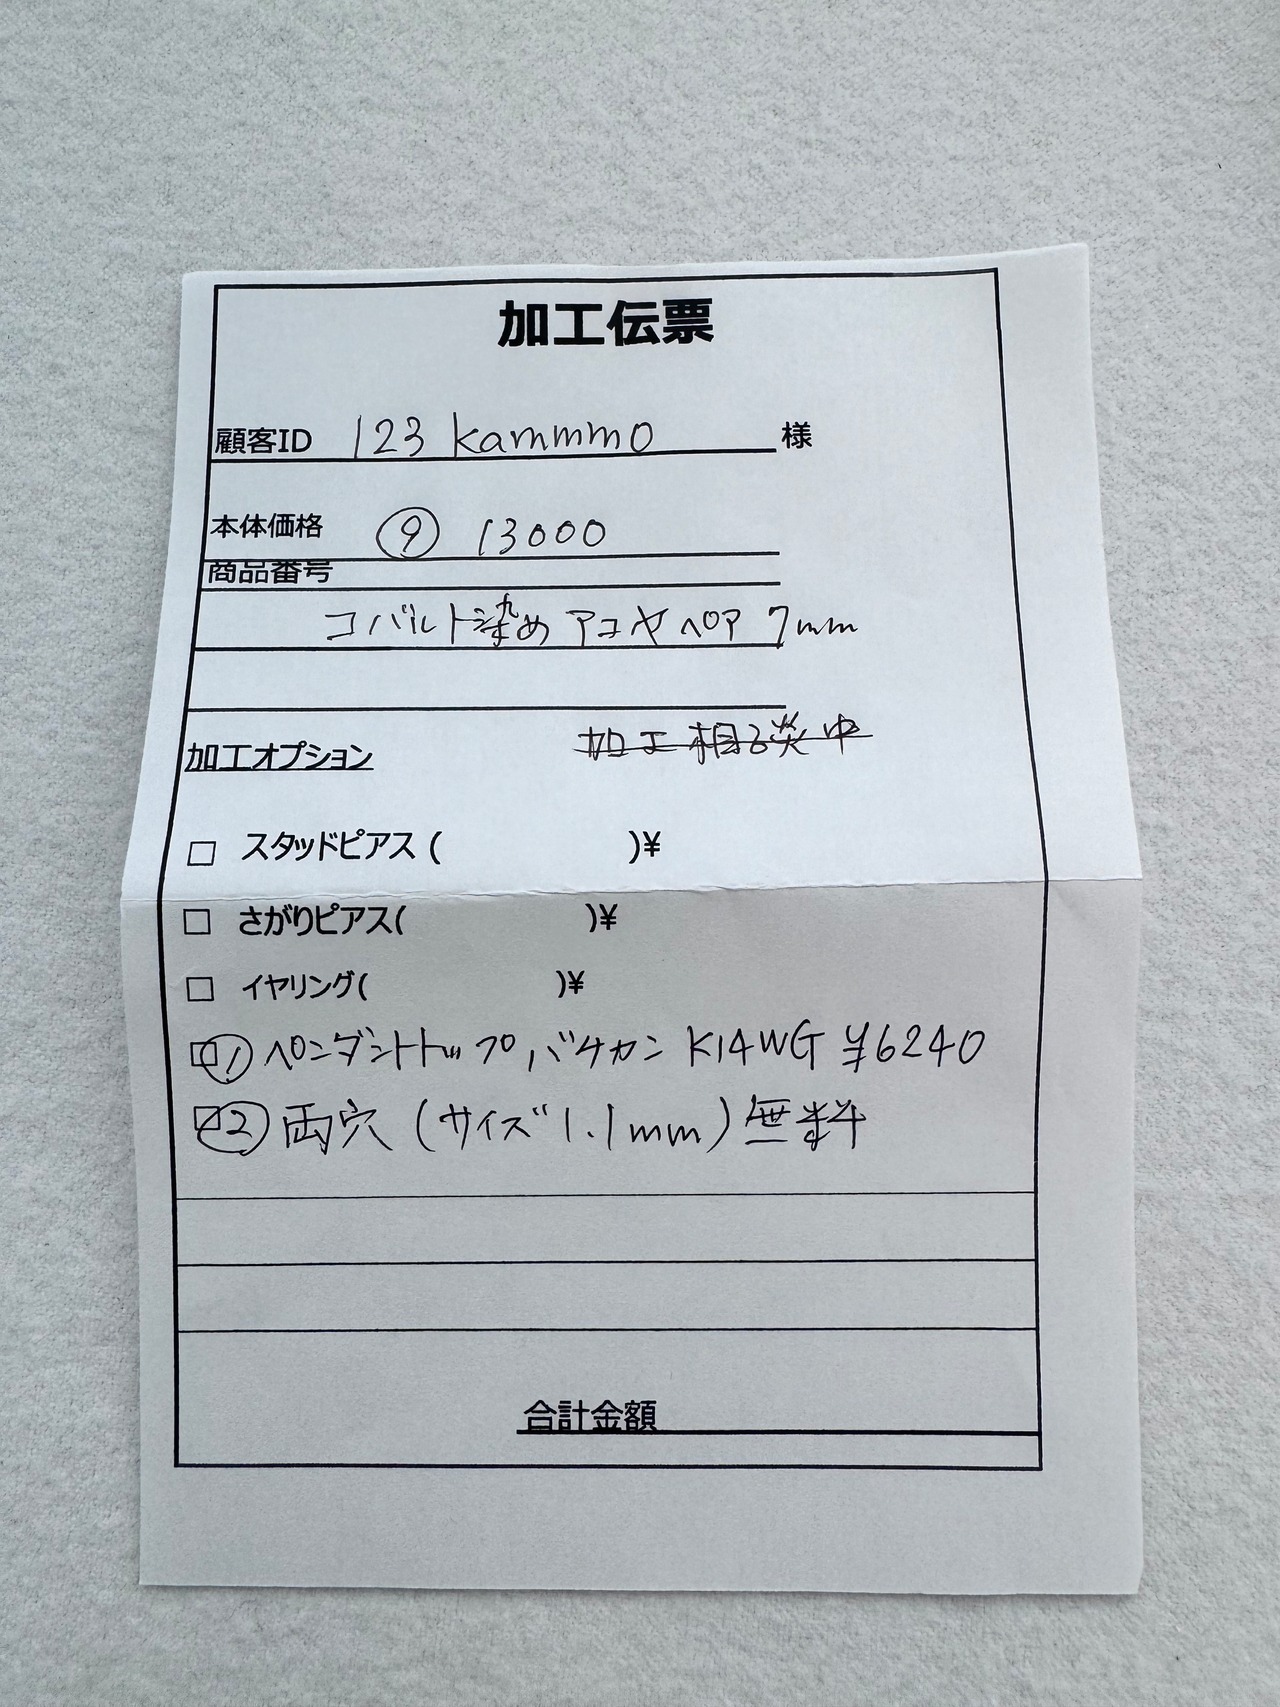 加工伝票
顧客ID 123 kammmo 様
本体価格 ⑨ 13000
商品番号
コバルト染め アコヤペア 7mm
加工オプション 加工相談中
□ スタッドピアス ( )¥
□ さがりピアス( )¥
□ イヤリング( )¥
□① ペンダントトップ,バチカン K14WG ¥6240
□② 両穴 (サイズ1.1mm) 無料
合計金額